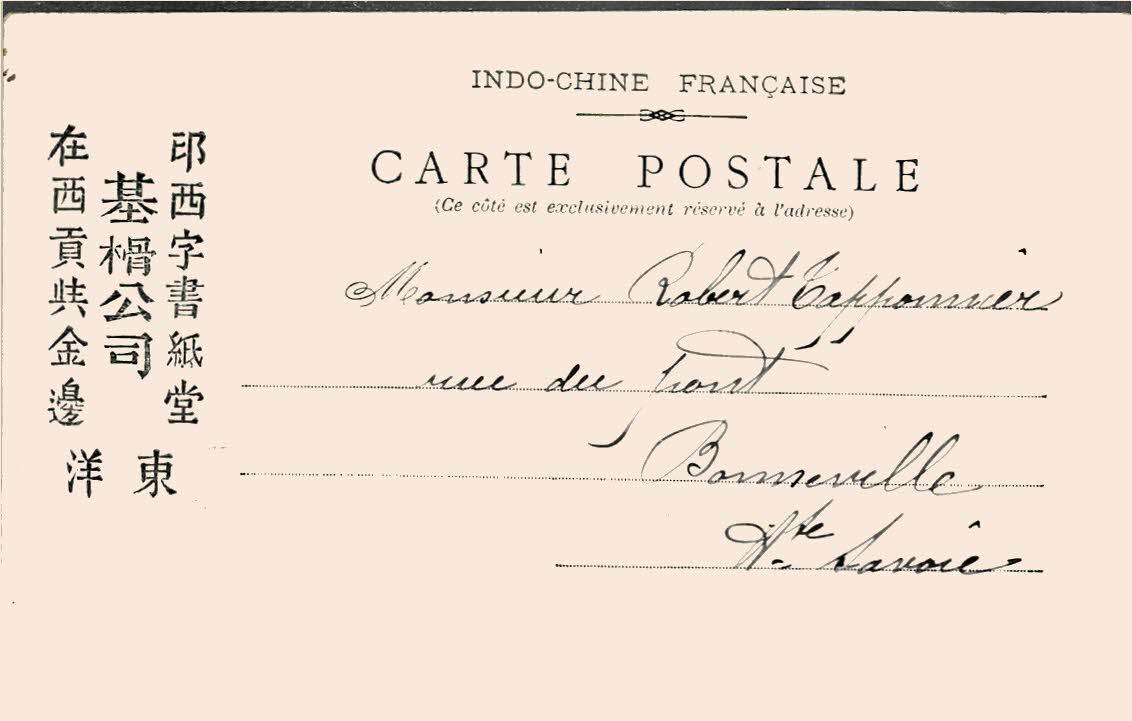 INDO-CHINE FRANÇAISE
CARTE POSTALE
(Ce côté est exclusivement réservé à l'adresse)
印西字書紙堂
基榾公司
在西貢共金邊
東洋
Monsieur Robert Tapponnier
rue du pont
Bonneville
Hte Savoie